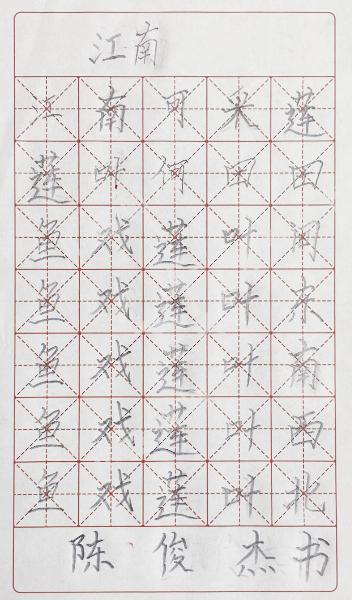 江南
江南可采蓮
蓮叶何田田
鱼戏蓮叶间
鱼戏蓮叶东
鱼戏蓮叶南
鱼戏蓮叶西
鱼戏蓮叶北
陈俊杰书